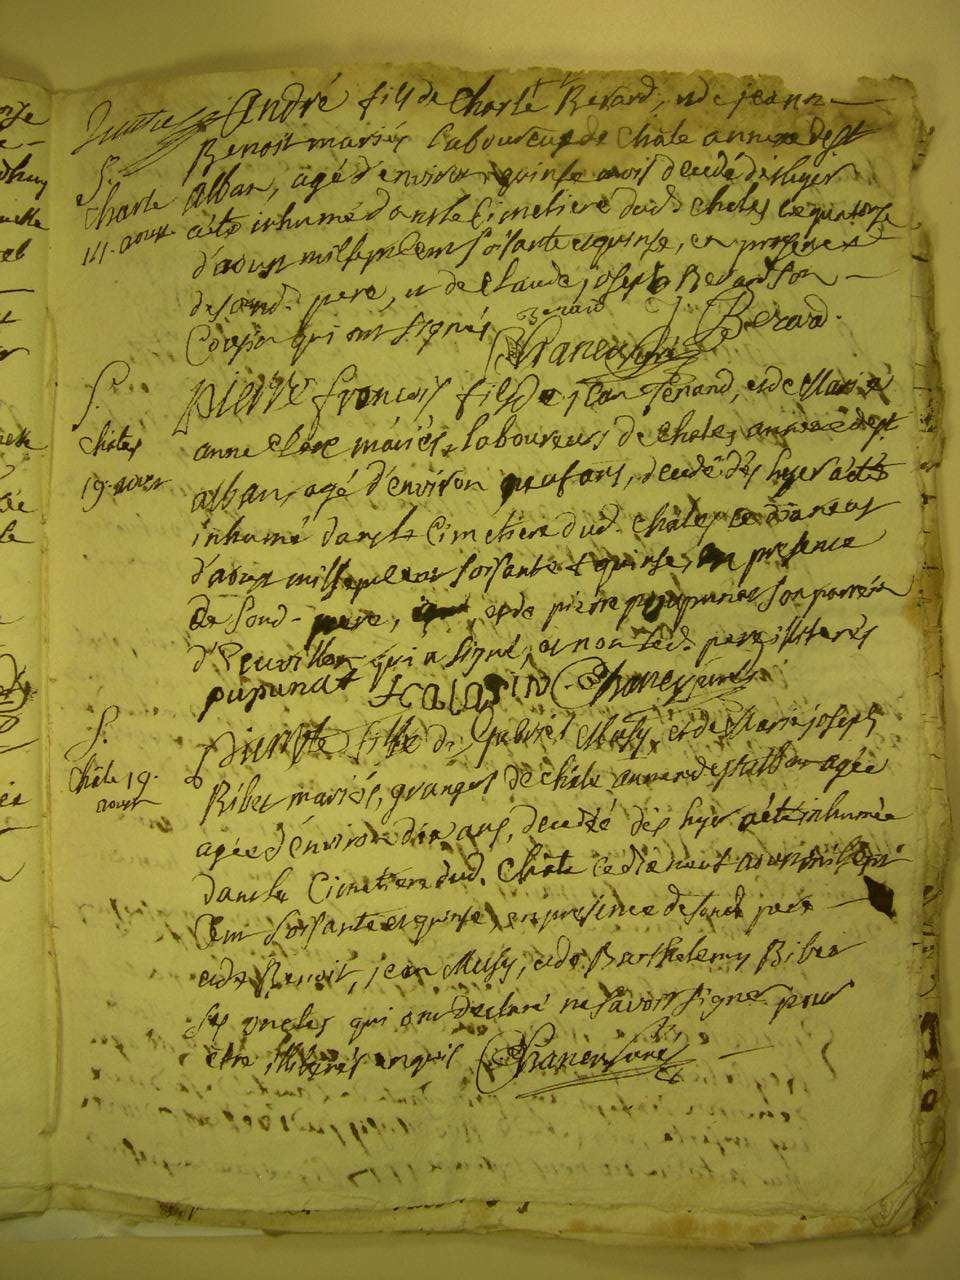 André fils de Charle Berard, et de jeanne
Benoit mariés laboureurs de Châle annexe de st
S.
Charle
14. aoust
alban, agé d'environ quinse mois decedé dès hyer
a été inhumé dans le Cimetiere dud. Châles le quatorse
d'aoust mil sept cent soissante et quinse, en presence
de sond. pere, et de Claude joseph Berard son
Cousin qui ont signés Berard J. Berard.
S.
Châles
19. aoust
pierre françois fils de jean Penand, et de Marie
anne mariés, laboureurs de Chales, annexe de st
alban, agé d'environ neuf ans, decedé dès hyer a été
inhumé dans le Cimetiere dud. Châles ce dixneuf
d'aoust mil sept cent soissante et quinse, en presence
de sond. pere, et de pierre pupunat son parrein
qui a signé, et non led. pere illiterés
pupunat
S.
Châle 19.
aoust
fille de Gabriel Musy, et de Marie joseph
Ribet mariés, grangers de Châle annexe de st alban agée
agée d'environ dix ans, decedée dès hyer a été inhumée
dans le Cimetiere dud. Châle ce dixneuf aoust mil sept
Cent soissante et quinse, en presence de sond. pere
et de Benoit, jean Musy, et de Barthelemy Ribet
ses oncles qui ont declaré ne savoir signer pour
etre illiterés enquis